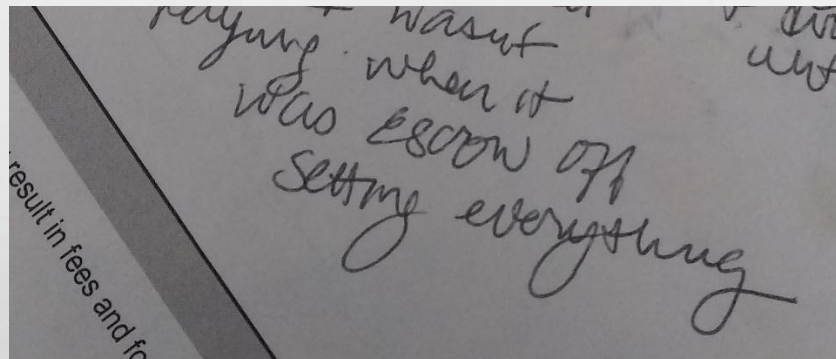 wasnt
paying when it
was escrow off
setting everything
result in fees and fo